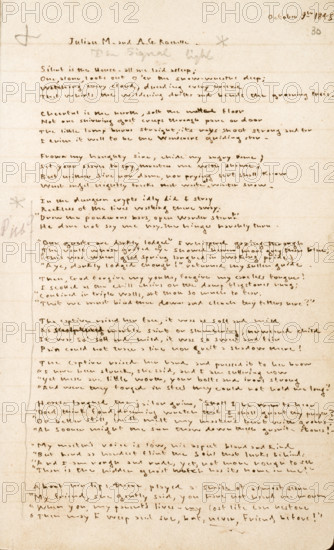 October 9th 1845
30
Julian M. and A.G. Rochelle
The Signal light
Silent is the House - all are laid asleep;
One, alone, looks out o'er the snow-wreaths deep;
Watching every cloud, dreading every breeze
That whirls the wildering drifts and bends the groaning trees
Cheerful is the hearth, soft the matted floor
Not one shivering gust creeps through pane or door
The little lamp burns straight; its rays shoot strong and far
I trim it well to be the Wanderer's guiding-star
Frown, my haughty sire, chide my angry dame;
Set your slaves to spy, threaten me with shame;
But neither sire nor dame, nor prying serf shall know
What angel nightly tracks that waste of winter snow
In the dungeon crypts idly did I stray
Reckless of the lives wasting there away;
"Draw the ponderous bars, open Warder stern!"
He dare not say me nay, the hinges harshly turn
"Our guests are darkly lodged" I whispered gazing through
"Aye, darkly lodged enough!" returned my sullen guide
Then, God forgive my youth, forgive my careless tongue!
I scoffed as the chill chains on the damp flagstones rung;
"Confined in triple walls, art thou so much to fear,
That we must bind thee down and clench thy fetters here?"
The captive raised her face, it was as soft and mild
As sculptured marble saint or slumbering, unweaned child
It was so soft and mild, it was so sweet and fair
Pain could not trace a line nor grief a shadow there!
The captive raised her hand and pressed it to her brow
"I have been struck, she said, and I am suffering now
Yet these are little worth, your bolts and irons strong
And were they forged in steel they could not hold me long"
Hoarse laughed the jailor grim, "Shall I be won to hear
"My master's voice is low, his aspect bland and kind
But hard as hardest flint the soul that lurks behind
And I am rough and rude, yet, not more rough to see
Than is the hidden ghost which has its home in me!"
About her lips there played a smile of almost scorn
"My friend, she gently said, you have not heard me mourn
When you, my parents' lives - my lost life can restore
Then may I weep and sue, but, never, Friend, before!"